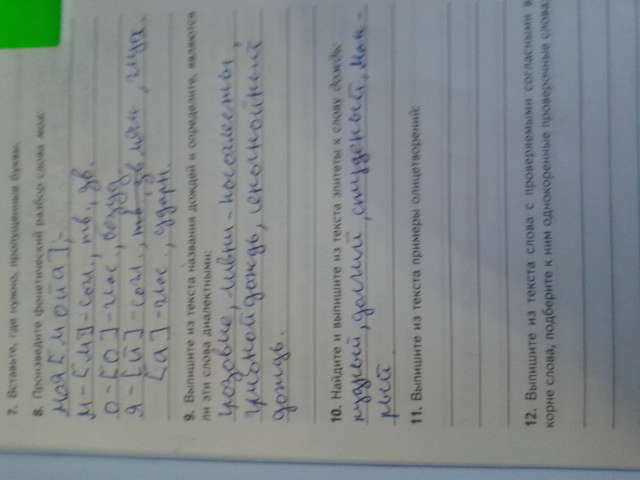 7. Вставьте, где нужно, пропущенные буквы.
8. Произведите фонетический разбор слова моя:
моя [мойа],-
м - [м] - согл., тв., зв.
о - [о] - глас., безуд
я - [й] - согл., мягк.
[а] - глас., ударн.
9. Выпишите из текста названия дождей и определите, являются
ли эти слова диалектными:
ливни - косохлёсты,
дождь,
дождь.
10. Найдите и выпишите из текста эпитеты к слову дождь:
нудный, долгий, студёный, мок-
рый.
11. Выпишите из текста примеры олицетворений:
12. Выпишите из текста слова с проверяемыми согласными в
корне слова, подберите к ним однокоренные проверочные слова: